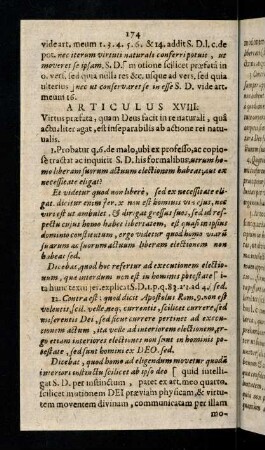 174
vide art. meum 1. 3. 4. 5. 6. & 14. addit S. D. l. c. de
pot. nec iterum virtuti naturali conferri potuit, ut
moveret se ipsam. S. D. in otione scilicet præfata in
o. vers. sed quia nulla res &c. usque ad vers. sed quia
ulterius nec ut conservaret se in esse S. D. vide art.
meum 16.
ARTICULUS XVIII.
Virtus præfata, quam Deus facit in re naturali, quâ
actu liter agat, est inseparabilis ab actione rei natu-
ralis.
1. Probatur q. 6. de malo, ubi ex professo, ac copio-
se tractat ac inquirit S. D. his formalibus, utrum ho-
mo liberam suorum actuum electionem habeat, aut ex
necessitate eligat?
Et videtur quod non liberè, sed ex necessitate eli-
gat. dicitur enim Jer. x. non est hominis via ejus, nec
viri est ut ambulet, & dirigat gressus suos, sed id res-
pectu cujus homo habet libertatem, est quasi in ipsius
dominio constitutum, ergo videtur quod homo viarũ
suarum ac suorum actuum liberam electionem non
habeat sed.
Dicebat, quod hoc refertur ad executionem electio-
num, quæ interdum non est in hominis potestate
ita hunc textũ jer. explicat S. D. 1. p. q. 83. a. 1. ad 4. sed.
12. Contra est: quod dicit Apostolus Rom. 9. non est
volentis, scil. velle, neq; currentis, scilicet currere, sed
miserentis Dei, sed sicut currere pertinet ad exte-
riorem actum, ita velle ad interiorem electionem, er-
go etiam interiores electiones non sunt in hominis po-
testate, sed sunt homini ex DEO. sed.
Dicebat, quod homo ad eligendum movetur quodã
interiori instinctu scilicet ab ipso deo [ quid intelli-
gat S. D. per instinctum, patet ex art. meo quarto,
scilicet motionem DEI præviam physicam, & virtu-
tem moventem divinam, communicatam per illam
mo-